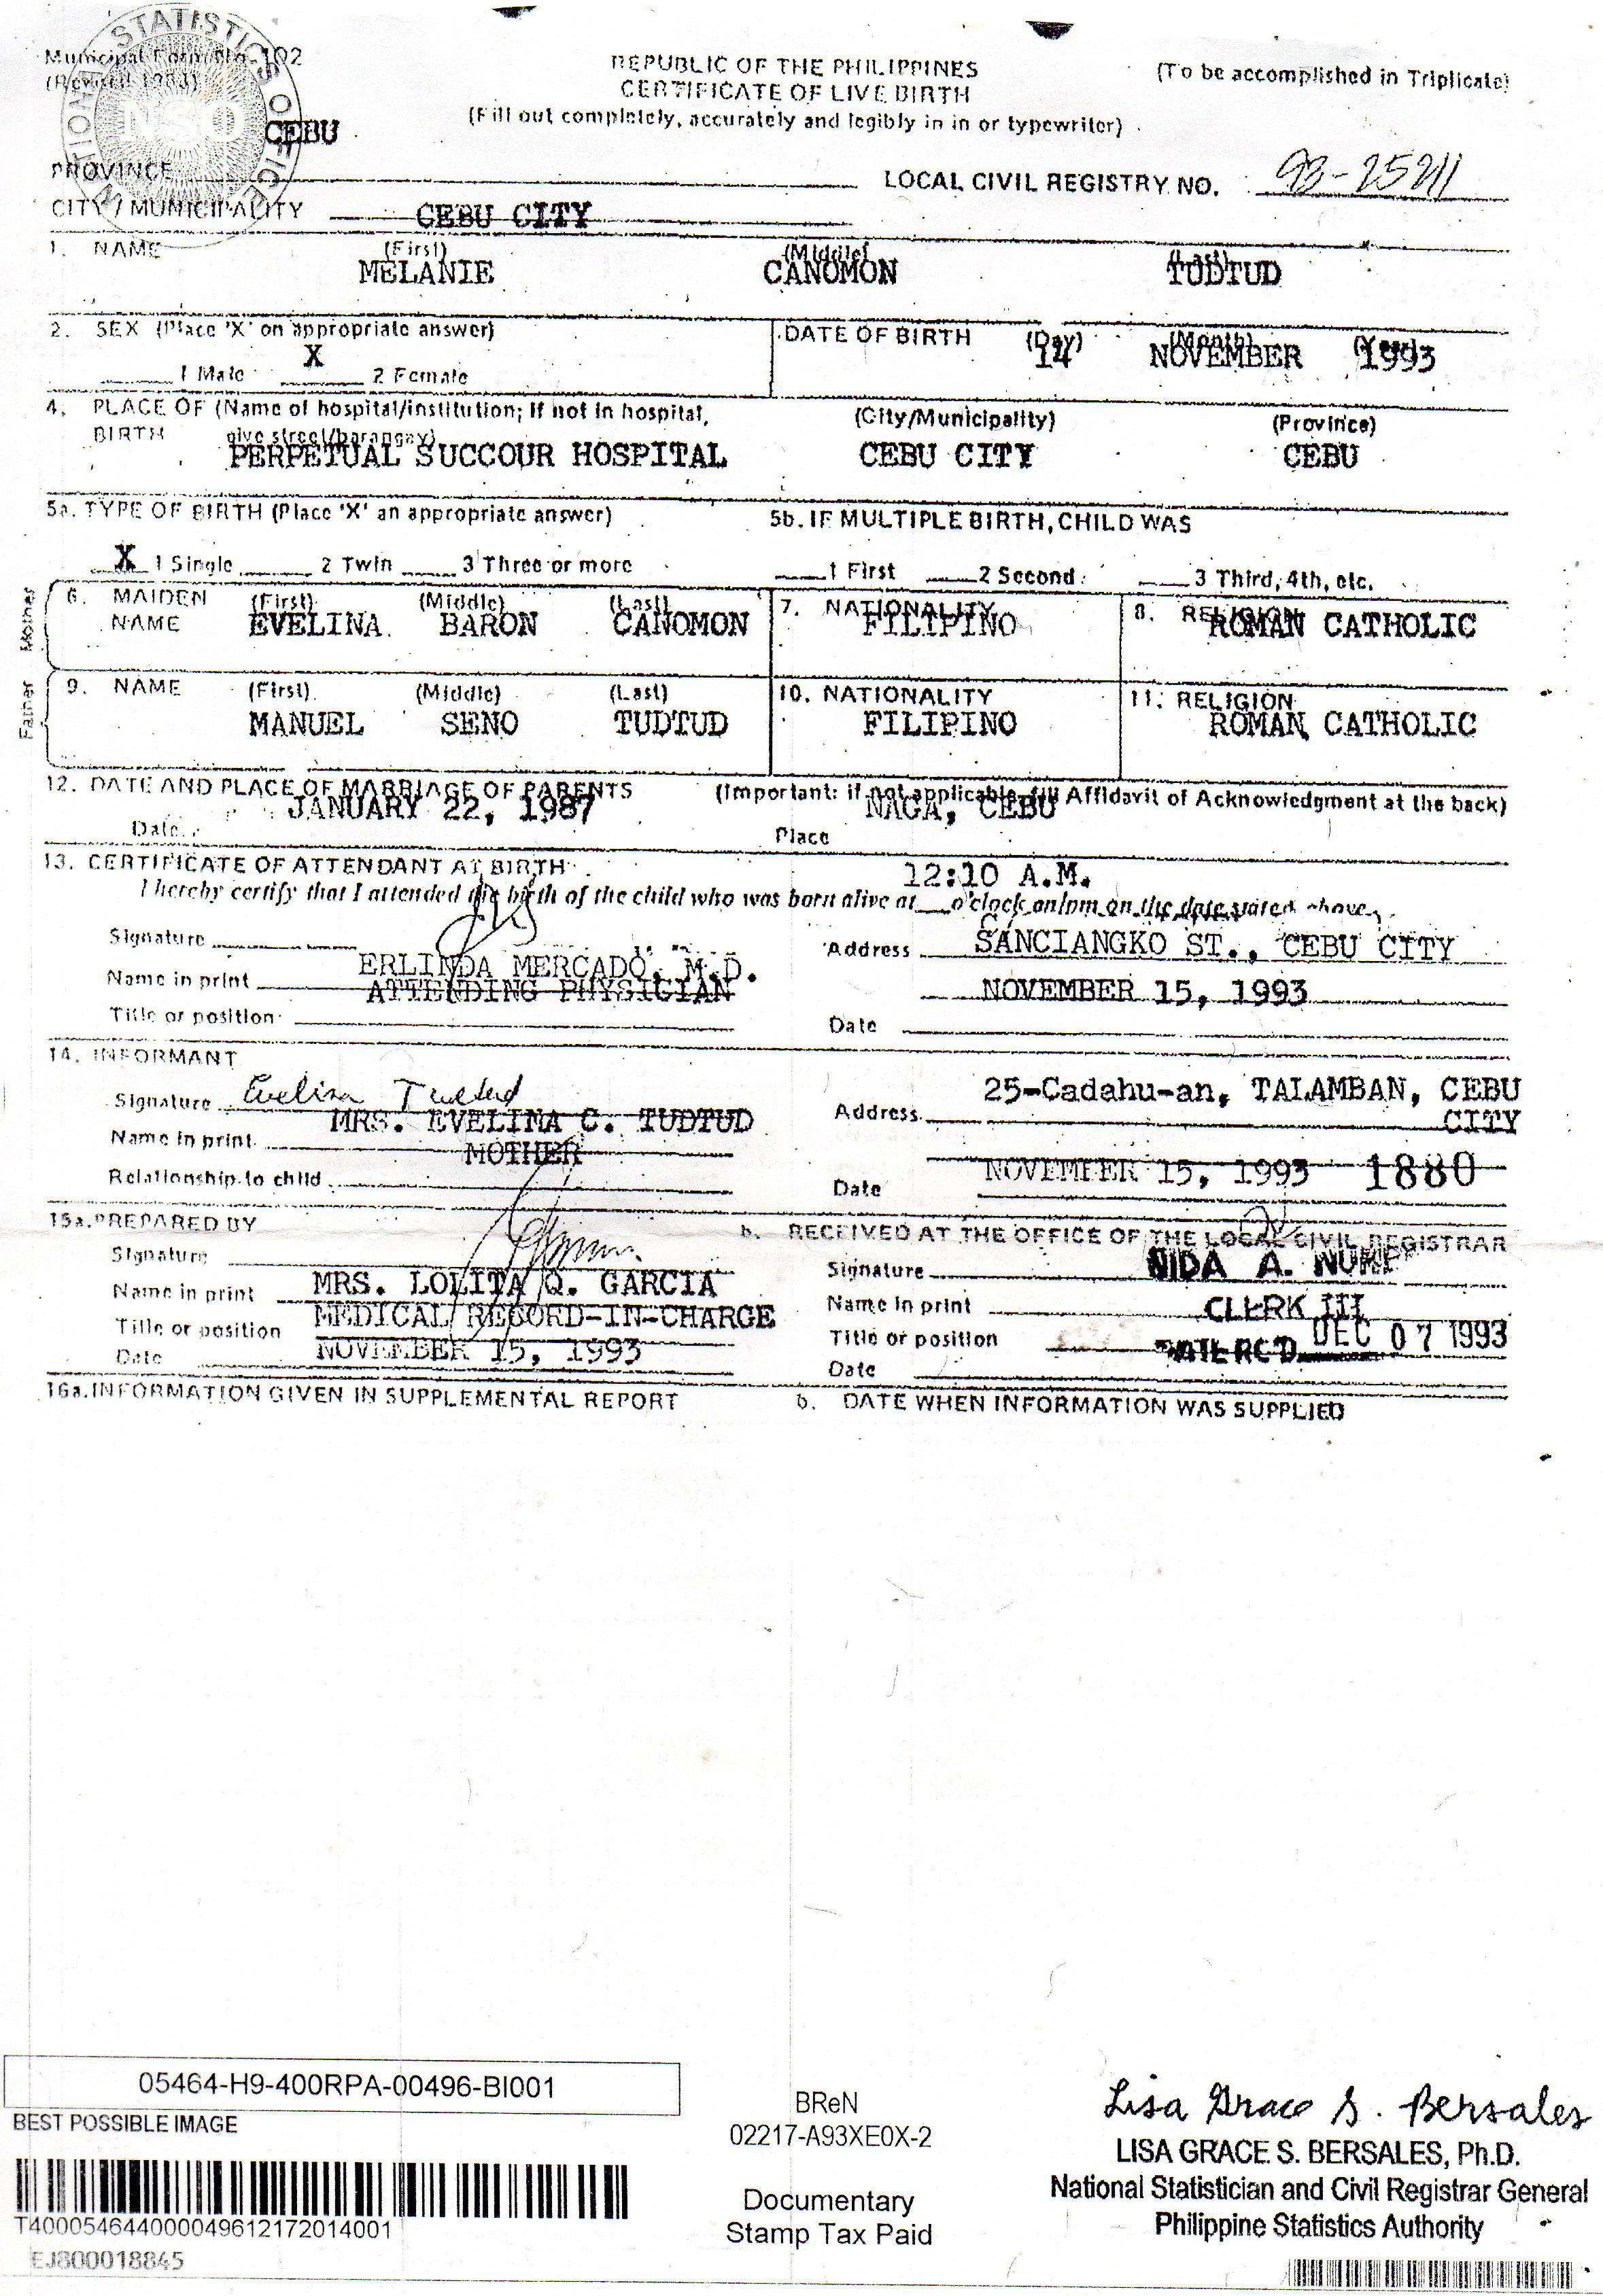 Municipal Form No. 102
(To be accomplished in Triplicate)
REPUBLIC OF THE PHILIPPINES
CERTIFICATE OF LIVE BIRTH
(Fill out completely, accurately and legibly in in or typewriter)
NSO
CEBU
PROVINCE
LOCAL CIVIL REGISTRY NO. 93-25211
CITY / MUNICIPALITY CEBU CITY
1. NAME (First) (Middle) (Last)
MELANIE CANOMON TUDTUD
2. SEX (Place 'X' on appropriate answer) DATE OF BIRTH (Day) (Month) (Year)
X 14 NOVEMBER 1993
1 Male 2 Female
4. PLACE OF (Name of hospital/institution; if not in hospital, (City/Municipality) (Province)
BIRTH give street/barangay)
PERPETUAL SUCCOUR HOSPITAL CEBU CITY CEBU
5a. TYPE OF BIRTH (Place 'X' an appropriate answer) 5b. IF MULTIPLE BIRTH, CHILD WAS
X 1 Single 2 Twin 3 Three or more 1 First 2 Second 3 Third, 4th, etc.
Mother
6. MAIDEN (First) (Middle) (Last) 7. NATIONALITY 8. RELIGION
NAME EVELINA BARON CANOMON FILIPINO ROMAN CATHOLIC
Father
9. NAME (First) (Middle) (Last) 10. NATIONALITY 11. RELIGION
MANUEL SENO TUDTUD FILIPINO ROMAN CATHOLIC
12. DATE AND PLACE OF MARRIAGE OF PARENTS (Important: if not applicable, fill Affidavit of Acknowledgment at the back)
JANUARY 22, 1987 NAGA, CEBU
Date Place
13. CERTIFICATE OF ATTENDANT AT BIRTH 12:10 A.M.
I hereby certify that I attended the birth of the child who was born alive at o'clock am/pm on the date stated above.
Signature Address SANCIANGKO ST., CEBU CITY
Name in print ERLINDA MERCADO, M.D.
ATTENDING PHYSICIAN NOVEMBER 15, 1993
Title or position Date
14. INFORMANT
Signature Evelina Tudtud Address 25-Cadahu-an, TALAMBAN, CEBU
MRS. EVELINA C. TUDTUD CITY
Name in print
MOTHER NOVEMBER 15, 1993 1880
Relationship to child Date
15a. PREPARED BY b. RECEIVED AT THE OFFICE OF THE LOCAL CIVIL REGISTRAR
Signature Signature NIDA A.
Name in print MRS. LOLITA Q. GARCIA Name in print CLERK III
Title or position MEDICAL RECORD-IN-CHARGE Title or position DATE RC'D. DEC 07 1993
Date NOVEMBER 15, 1993 Date
16a. INFORMATION GIVEN IN SUPPLEMENTAL REPORT b. DATE WHEN INFORMATION WAS SUPPLIED
05464-H9-400RPA-00496-BI001
BEST POSSIBLE IMAGE
T400054644000049612172014001
EJ800018845
BReN
02217-A93XE0X-2
Documentary
Stamp Tax Paid
Lisa Grace S. Bersales
LISA GRACE S. BERSALES, Ph.D.
National Statistician and Civil Registrar General
Philippine Statistics Authority